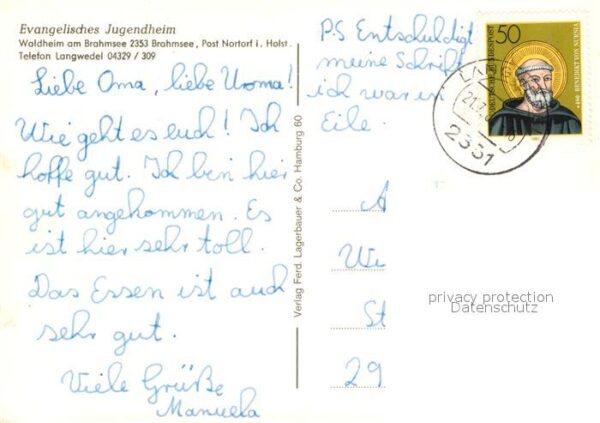 Evangelisches Jugendheim
Waldheim am Brahmsee 2353 Brahmsee, Post Nortorf i. Holst.
Telefon Langwedel 04329 / 309
Liebe Oma, liebe Uroma!
Wie geht es euch! Ich
hoffe gut. Ich bin hier
gut angekommen. Es
ist hier sehr toll.
Das Essen ist auch
sehr gut.
Viele Grüße
Manuela
Verlag Ferd. Lagerbauer & Co. Hamburg 60
P.S Entschuldigt
meine Schrift
ich war in
Eile.
50
DEUTSCHE BUNDESPOST
BENEDIKT VON NURSIA
2351
A
Wi
St
29
privacy protection
Datenschutz